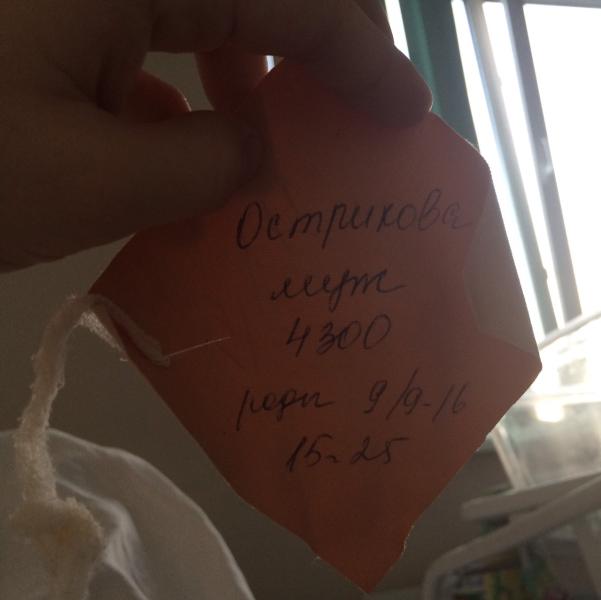 Острикова
муж
4300
роды 9/9-16
15-25